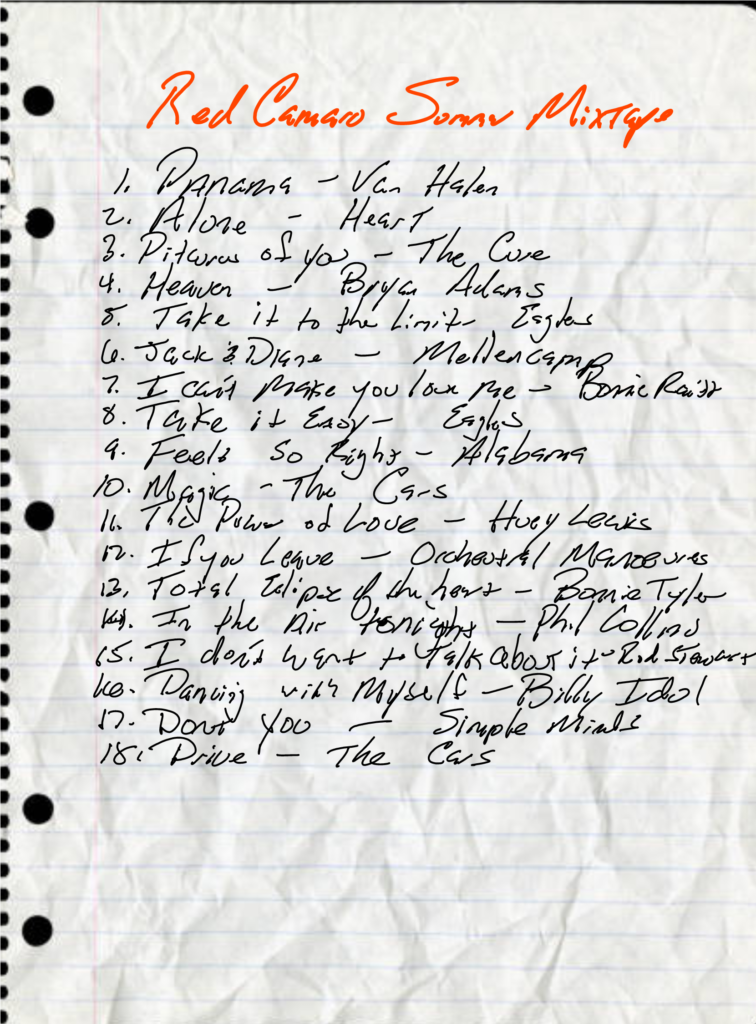 Red Camaro Summer Mixtape
1. Panama - Van Halen
2. Alone - Heart
3. Pitcures of you - The Cure
4. Heaven - Bryan Adams
5. Take it to the Limit - Eagles
6. Jack & Diane - Mellencamp
7. I can't make you love me - Bonnie Raitt
8. Take it Easy - Eagles
9. Feels So Right - Alabama
10. Magic - The Cars
11. The Power of Love - Huey Lewis
12. If you Leave - Orchestral Manoeuvres
13. Total Eclipse of the heart - Bonnie Tyler
14. In the Air tonight - Phil Collins
15. I don't want to Talk about it - Rod Stewart
16. Dancing with Myself - Billy Idol
17. Don't you - Simple Minds
18. Drive - The Cars